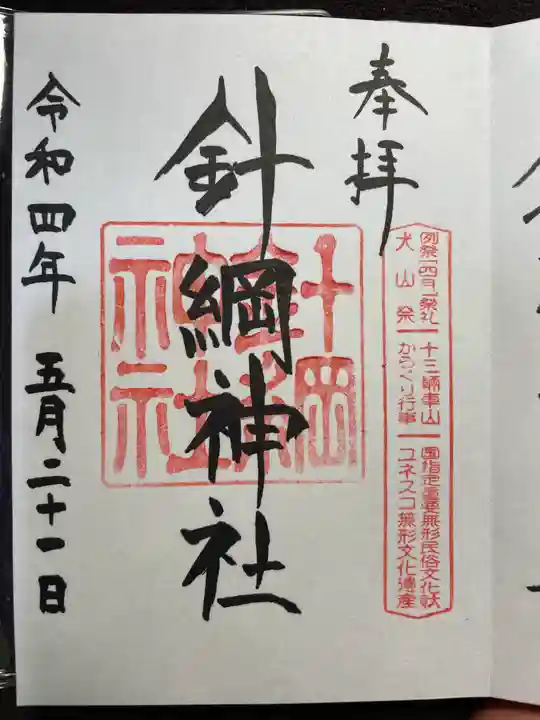 奉拝
例祭「四月」祭礼 十三輌車山 国指定重要無形民俗文化財
犬山祭 からくり行事 ユネスコ無形文化遺産
針綱神社
針綱神社
令和四年 五月二十一日